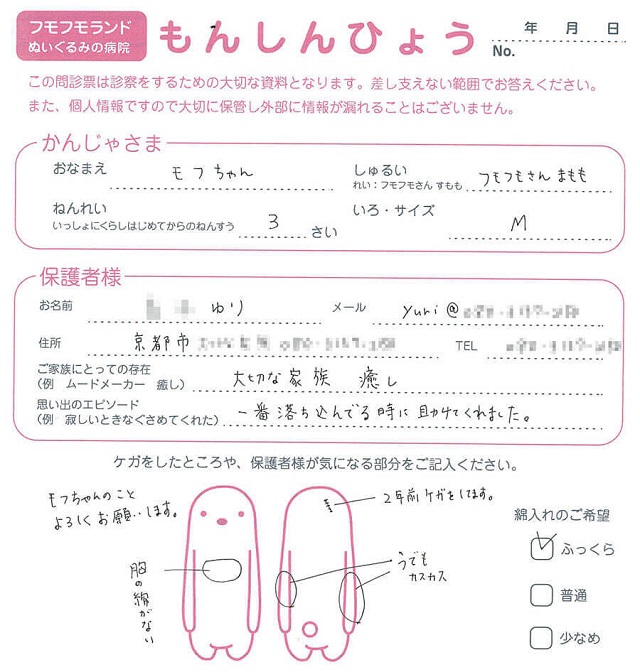 フモフモランド
ぬいぐるみの病院
もんしんひょう
年 月 日
No.
この問診票は診察をするための大切な資料となります。差し支えない範囲でお答えください。
また、個人情報ですので大切に保管し外部に情報が漏れることはございません。
かんじゃさま
おなまえ モフちゃん
しゅるい フモフモさん まもも
れい：フモフモさん すもも
ねんれい
いっしょにくらしはじめてからのねんすう 3 さい
いろ・サイズ M
保護者様
お名前 ゆり
メール yuri@
住所 京都市
TEL
ご家族にとっての存在
(例 ムードメーカー 癒し) 大切な家族 癒し
思い出のエピソード
(例 寂しいときなぐさめてくれた) 一番落ち込んでる時に助けてくれました。
ケガをしたところや、保護者様が気になる部分をご記入ください。
モフちゃんのこと
よろしくお願いします。
2年前ケガをしてます。
胸の綿がない
うでも
カスカス
綿入れのご希望
ふっくら
普通
少なめ